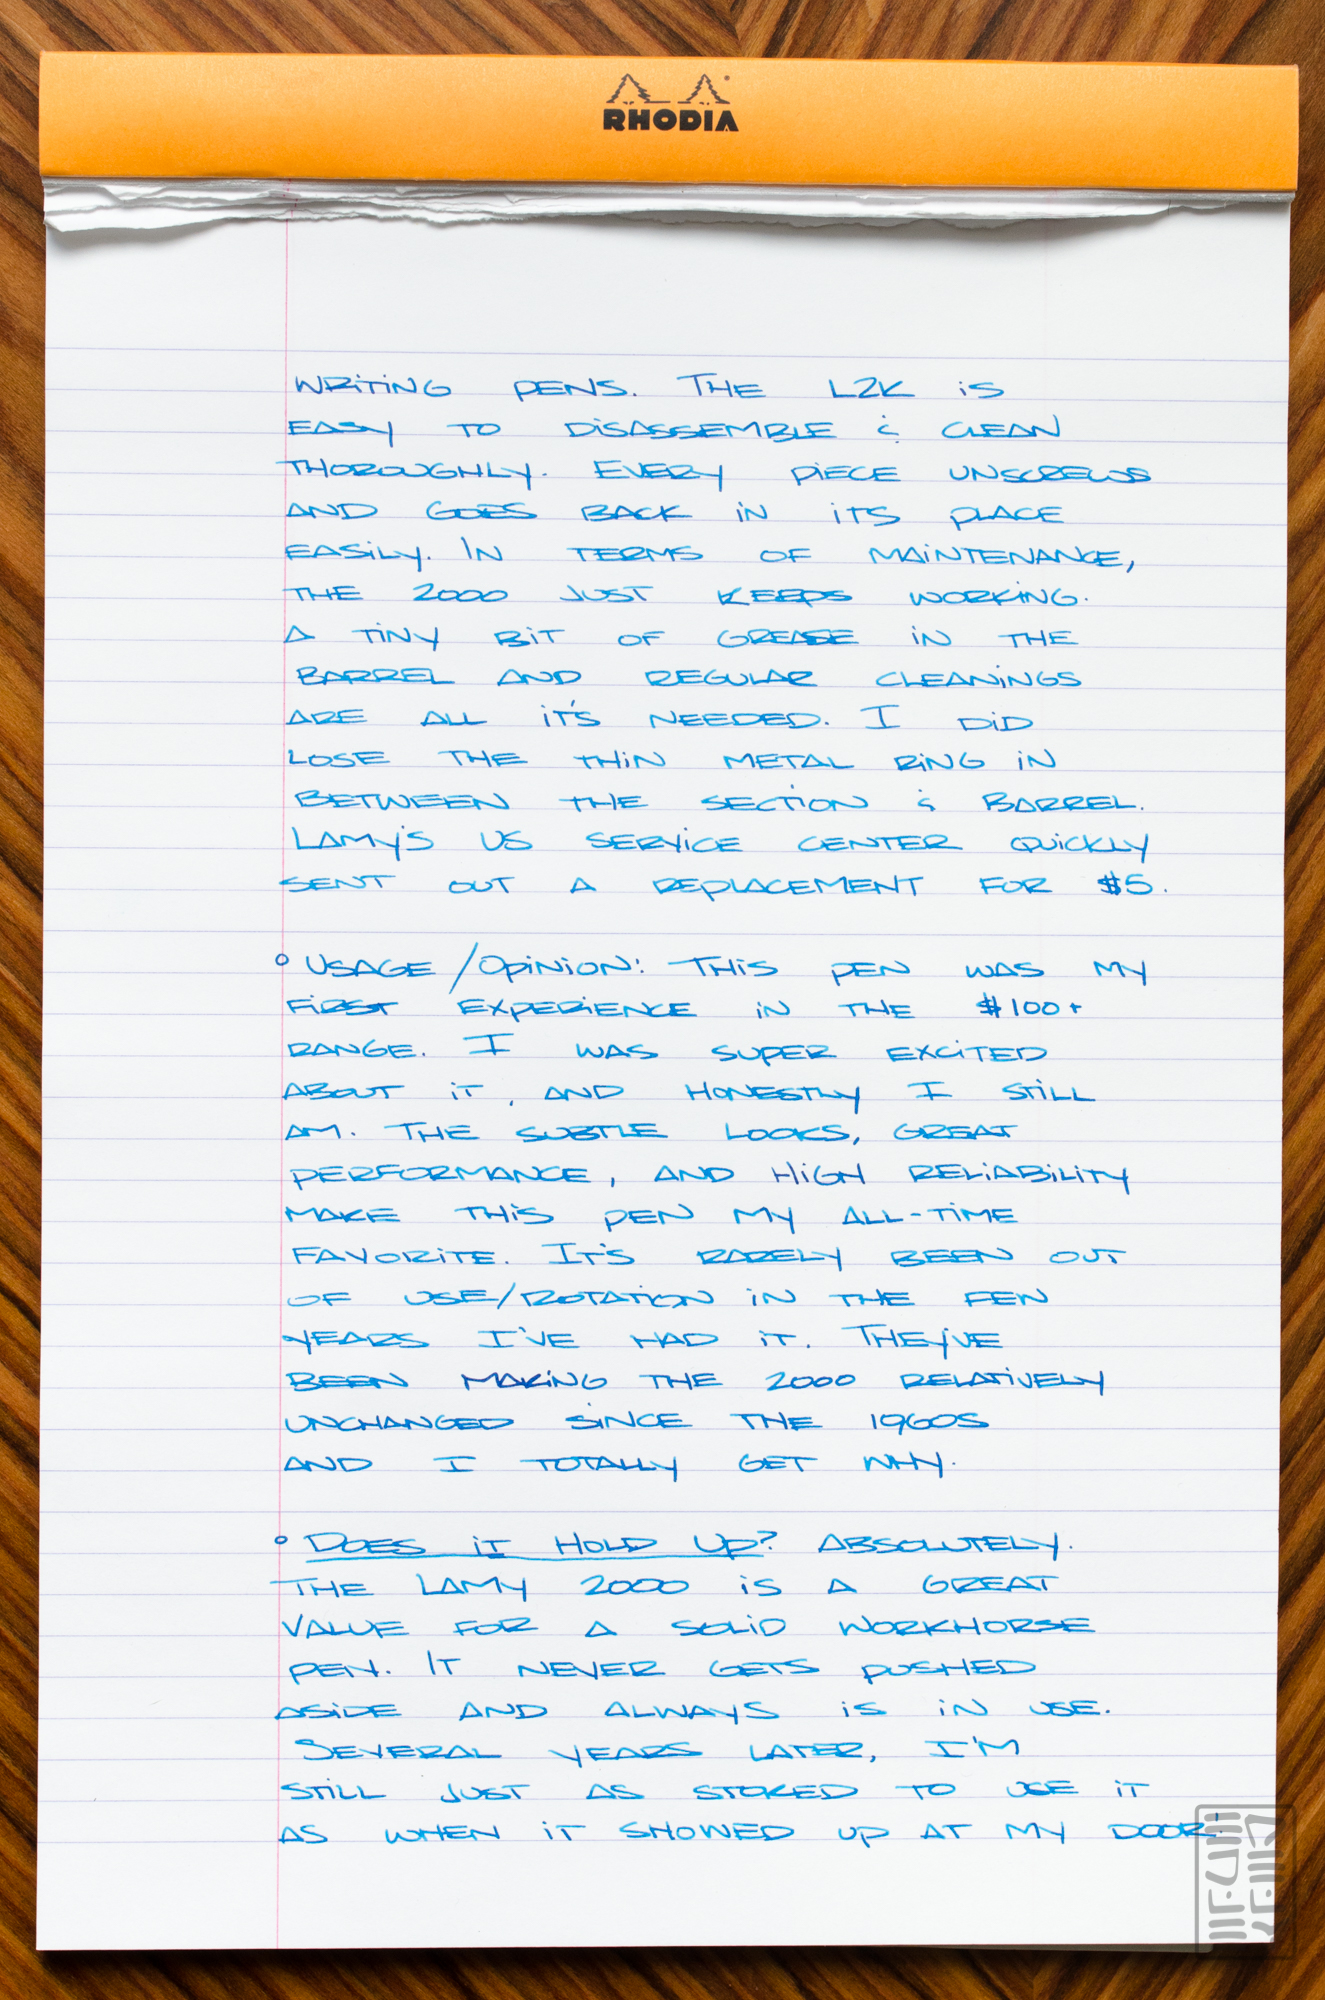 RHODIA
WRITING PENS. THE L2K IS
EASY TO DISASSEMBLE & CLEAN
THOROUGHLY. EVERY PIECE UNSCREWS
AND GOES BACK IN ITS PLACE
EASILY. IN TERMS OF MAINTENANCE,
THE 2000 JUST KEEPS WORKING.
A TINY BIT OF GREASE IN THE
BARREL AND REGULAR CLEANINGS
ARE ALL IT'S NEEDED. I DID
LOSE THE THIN METAL RING IN
BETWEEN THE SECTION & BARREL.
LAMY'S US SERVICE CENTER QUICKLY
SENT OUT A REPLACEMENT FOR $5.
° USAGE/OPINION: THIS PEN WAS MY
FIRST EXPERIENCE IN THE $100+
RANGE. I WAS SUPER EXCITED
ABOUT IT, AND HONESTLY I STILL
AM. THE SUBTLE LOOKS, GREAT
PERFORMANCE, AND HIGH RELIABILITY
MAKE THIS PEN MY ALL-TIME
FAVORITE. IT'S RARELY BEEN OUT
OF USE/ROTATION IN THE FEW
YEARS I'VE HAD IT. THEY'VE
BEEN MAKING THE 2000 RELATIVELY
UNCHANGED SINCE THE 1960S
AND I TOTALLY GET WHY.
° DOES IT HOLD UP? ABSOLUTELY.
THE LAMY 2000 IS A GREAT
VALUE FOR A SOLID WORKHORSE
PEN. IT NEVER GETS PUSHED
ASIDE AND ALWAYS IS IN USE.
SEVERAL YEARS LATER, I'M
STILL JUST AS STOKED TO USE IT
AS WHEN IT SHOWED UP AT MY DOOR!